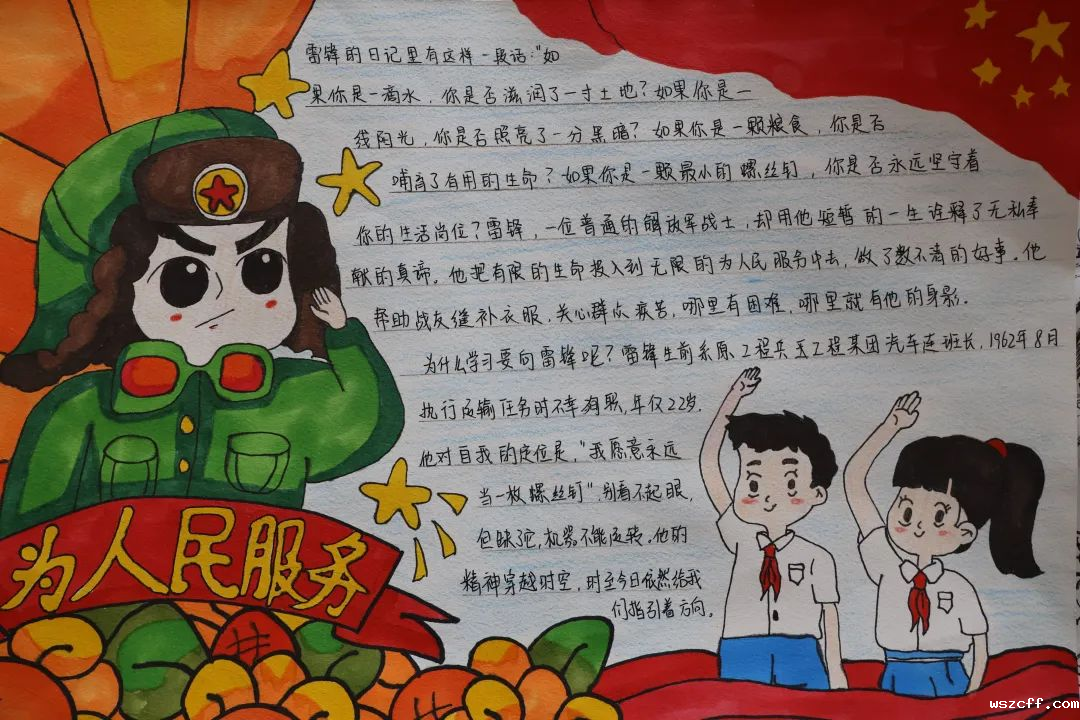 雷锋的日记里有这样一段话:"如
果你是一滴水，你是否滋润了一寸土地?如果你是一
线阳光，你是否照亮了一分黑暗?如果你是一颗粮食，你是否
哺育了有用的生命?如果你是一颗最小的螺丝钉，你是否永远坚守着
你的生活岗位?雷锋，一位普通的解放军战士，却用他短暂的一生诠释了无私奉
献的真谛。他把有限的生命投入到无限的为人民服务中去，做了数不清的好事。他
帮助战友缝补衣服，关心群众疾苦，哪里有困难，哪里就有他的身影。
为什么学习要向雷锋呢?雷锋生前系原工程兵工程某团汽车连班长，1962年8月
执行运输任务时不幸殉职，年仅22岁。
他对自我的定位是，"我愿意永远
当一枚螺丝钉"，别看不起眼，
但缺它，机器不能运转。他的
精神穿越时空，时至今日依然给我
们指引着方向。
为人民服务
wszcff.com